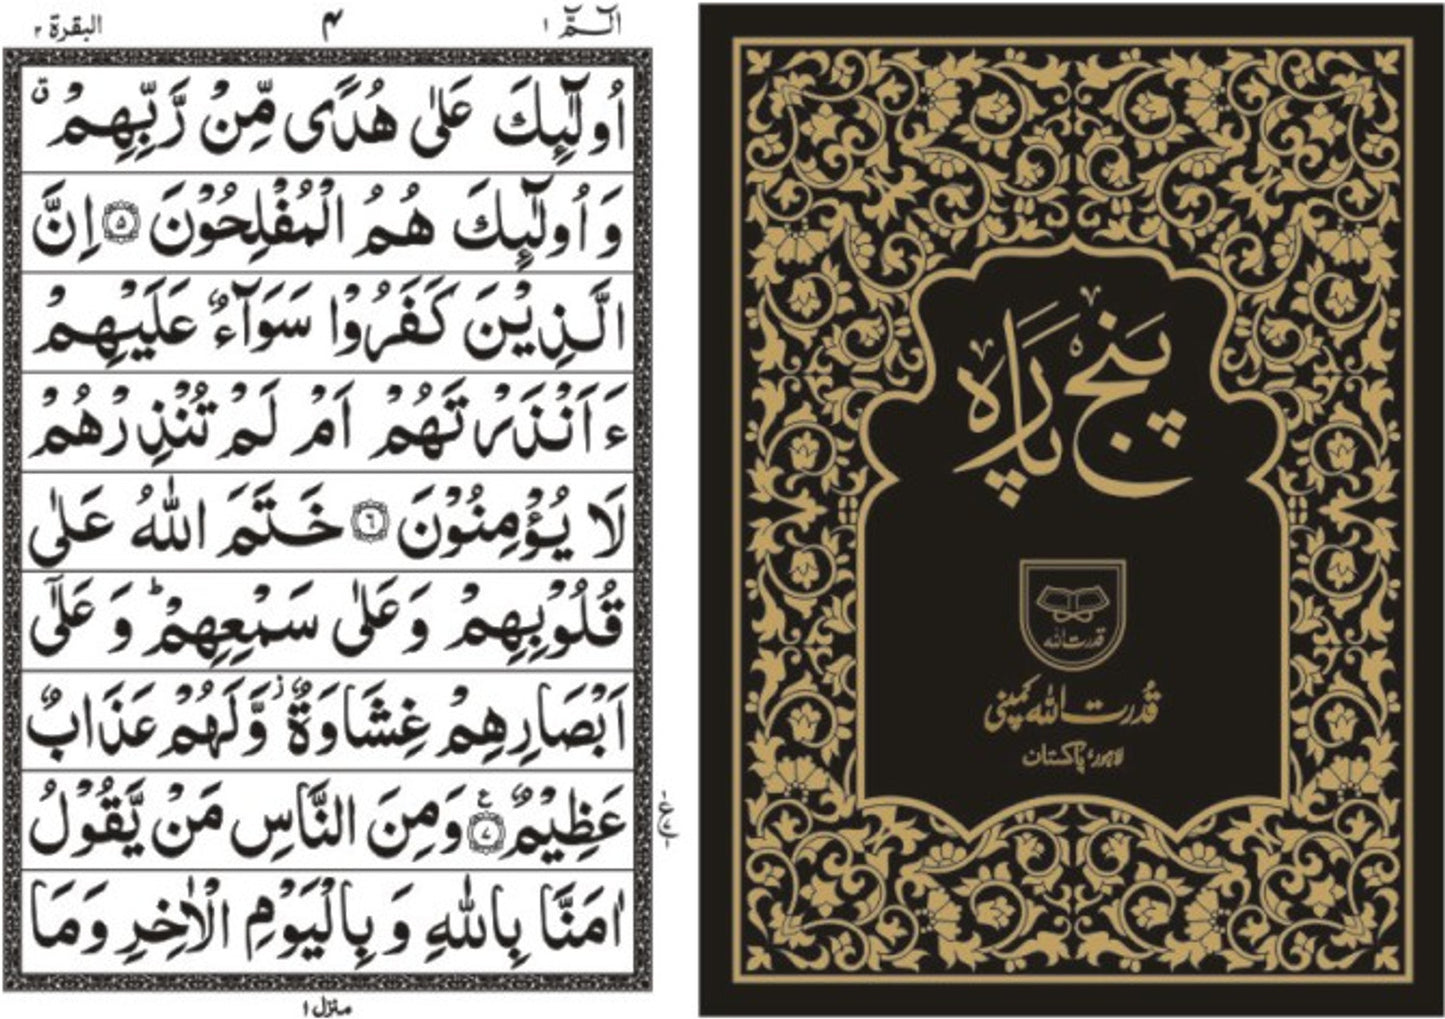 الٓمّٓ ۱
۴
البقرة ۲
اُولٰٓئِكَ عَلٰى هُدًى مِّنْ رَّبِّهِمْ ۗ
وَ اُولٰٓئِكَ هُمُ الْمُفْلِحُوْنَ ۝۵ اِنَّ
الَّذِيْنَ كَفَرُوْا سَوَآءٌ عَلَيْهِمْ
ءَاَنْذَرْتَهُمْ اَمْ لَمْ تُنْذِرْهُمْ
لَا يُؤْمِنُوْنَ ۝۶ خَتَمَ اللّٰهُ عَلٰى
قُلُوْبِهِمْ وَعَلٰى سَمْعِهِمْ ؕ وَ عَلٰٓى
اَبْصَارِهِمْ غِشَاوَةٌ ؗ وَّلَهُمْ عَذَابٌ
عَظِيْمٌ ۝۷ ع وَمِنَ النَّاسِ مَنْ يَّقُوْلُ
اٰمَنَّا بِاللّٰهِ وَ بِالْيَوْمِ الْاٰخِرِ وَمَا
منزل ۱
پَنج پَارَہ
قدرت اللہ
قُدرت اللہ کمپنی
لاہور، پاکستان